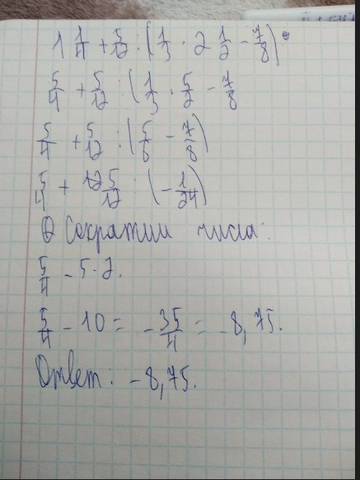 1 1/4 + 5/12 : (1/3 · 2 1/2 - 7/8) =
5/4 + 5/12 : (1/3 · 5/2 - 7/8
5/4 + 5/12 : (5/6 - 7/8)
5/4 + 5/12 : (-1/24)
Сократим числа:
5/4 - 5·2.
5/4 - 10 = -35/4 = -8,75.
Ответ: -8,75.